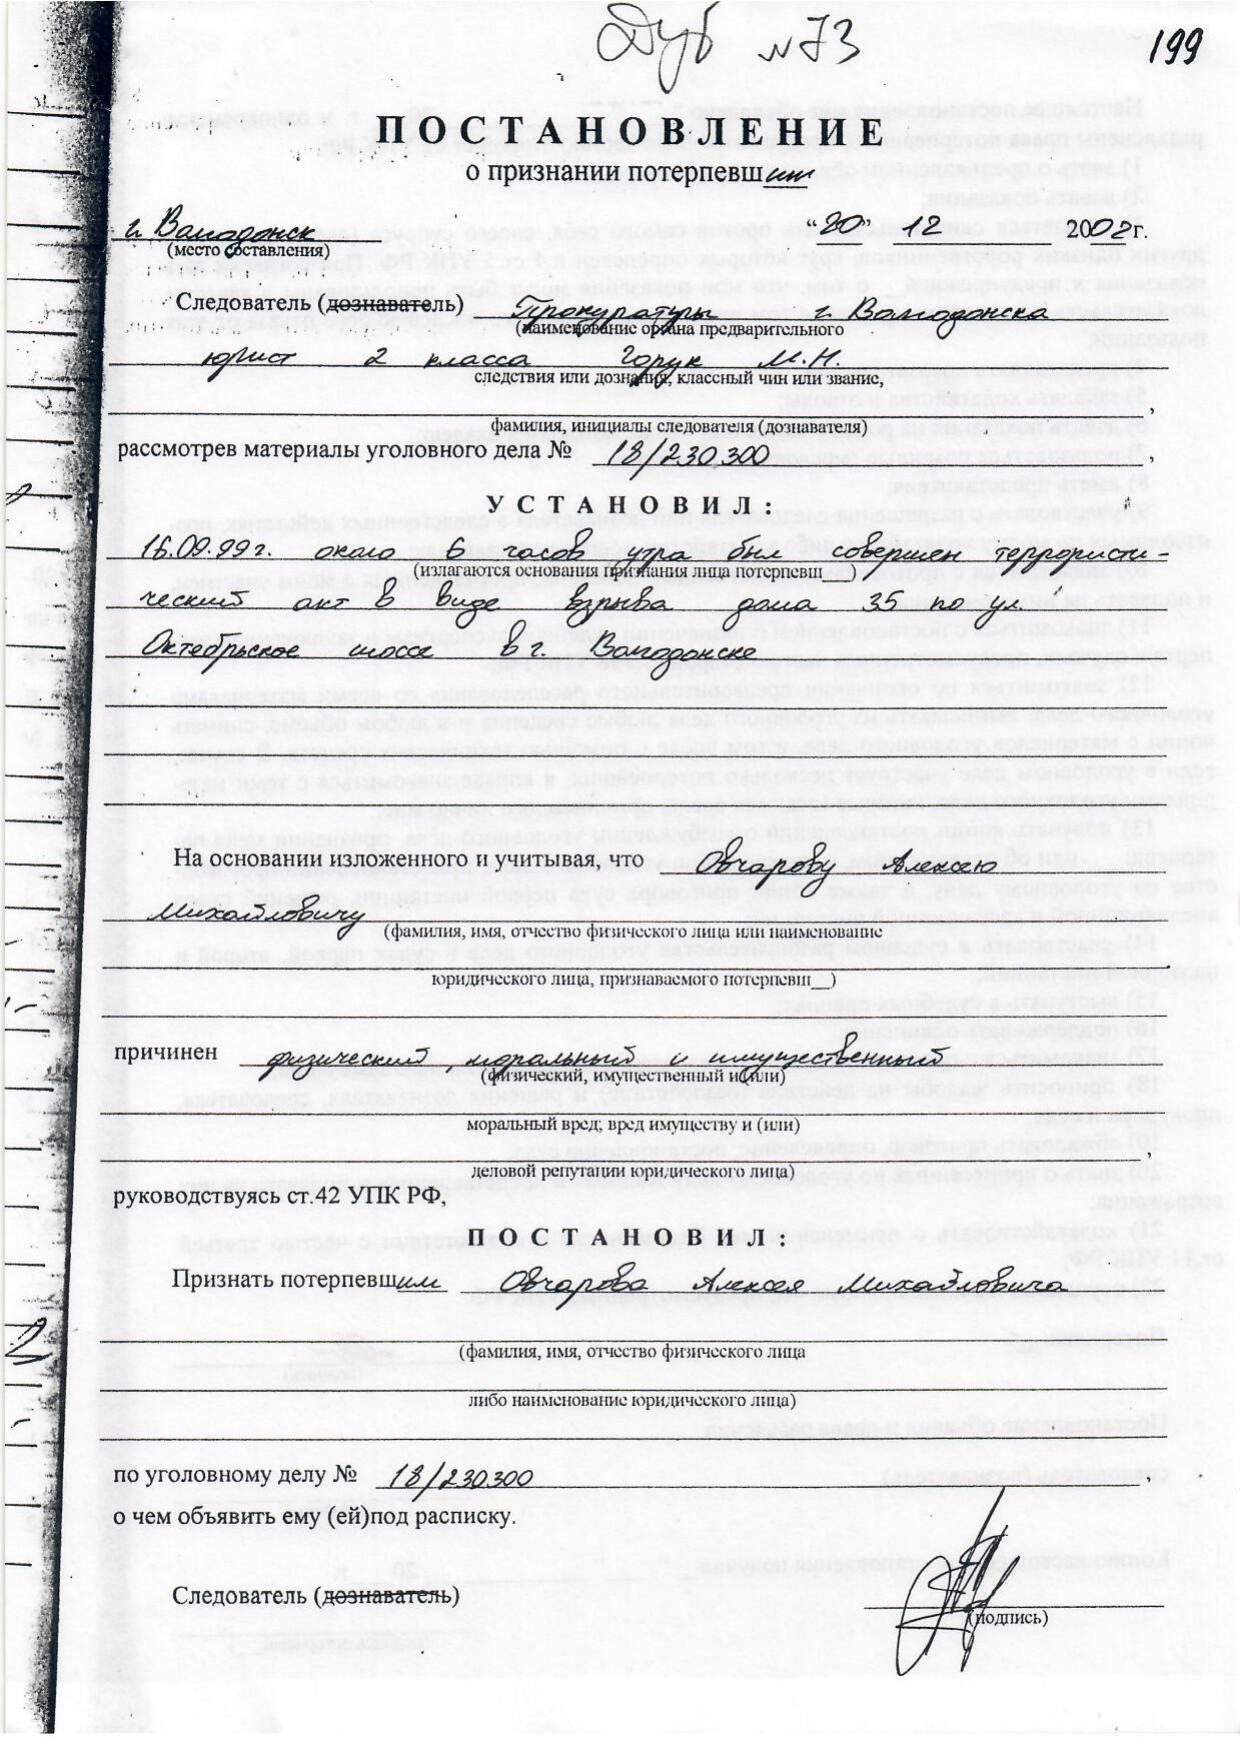 Дуб №73
199
ПОСТАНОВЛЕНИЕ
о признании потерпевшим
г. Волгодонск "20" 12 2002г.
(место составления)
Следователь (дознаватель) Прокуратуры г. Волгодонска
(наименование органа предварительного
юрист 2 класса Горук М.Н.
следствия или дознания, классный чин или звание,
,
фамилия, инициалы следователя (дознавателя)
рассмотрев материалы уголовного дела № 18/230300 ,
УСТАНОВИЛ:
16.09.99г. около 6 часов утра был совершен террористи-
(излагаются основания признания лица потерпевш__)
ческий акт в виде взрыва дома 35 по ул.
Октябрьское шоссе в г. Волгодонске
На основании изложенного и учитывая, что Овчарову Алексею
Михайловичу
(фамилия, имя, отчество физического лица или наименование
юридического лица, признаваемого потерпевш__)
причинен физический моральный и имущественный
(физический, имущественный и(или)
моральный вред; вред имуществу и (или)
,
деловой репутации юридического лица)
руководствуясь ст.42 УПК РФ,
ПОСТАНОВИЛ:
Признать потерпевшим Овчарова Алексея Михайловича
(фамилия, имя, отчество физического лица
либо наименование юридического лица)
по уголовному делу № 18/230300 ,
о чем объявить ему (ей)под расписку.
Следователь (дознаватель)
(подпись)